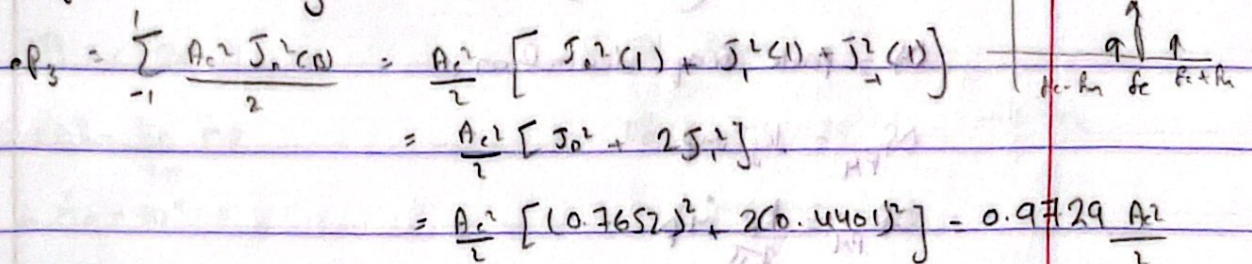 P₃ = Σ₋₁¹ Ac² Jn²(β) / 2 = Ac²/2 [ J₀²(1) + J₁²(1) + J₋₁²(1) ]
fc-fm fc fc+fm
= Ac²/2 [ J₀² + 2J₁² ]
= Ac²/2 [ (0.7652)² + 2(0.4401)² ] = 0.9729 Ac²/2